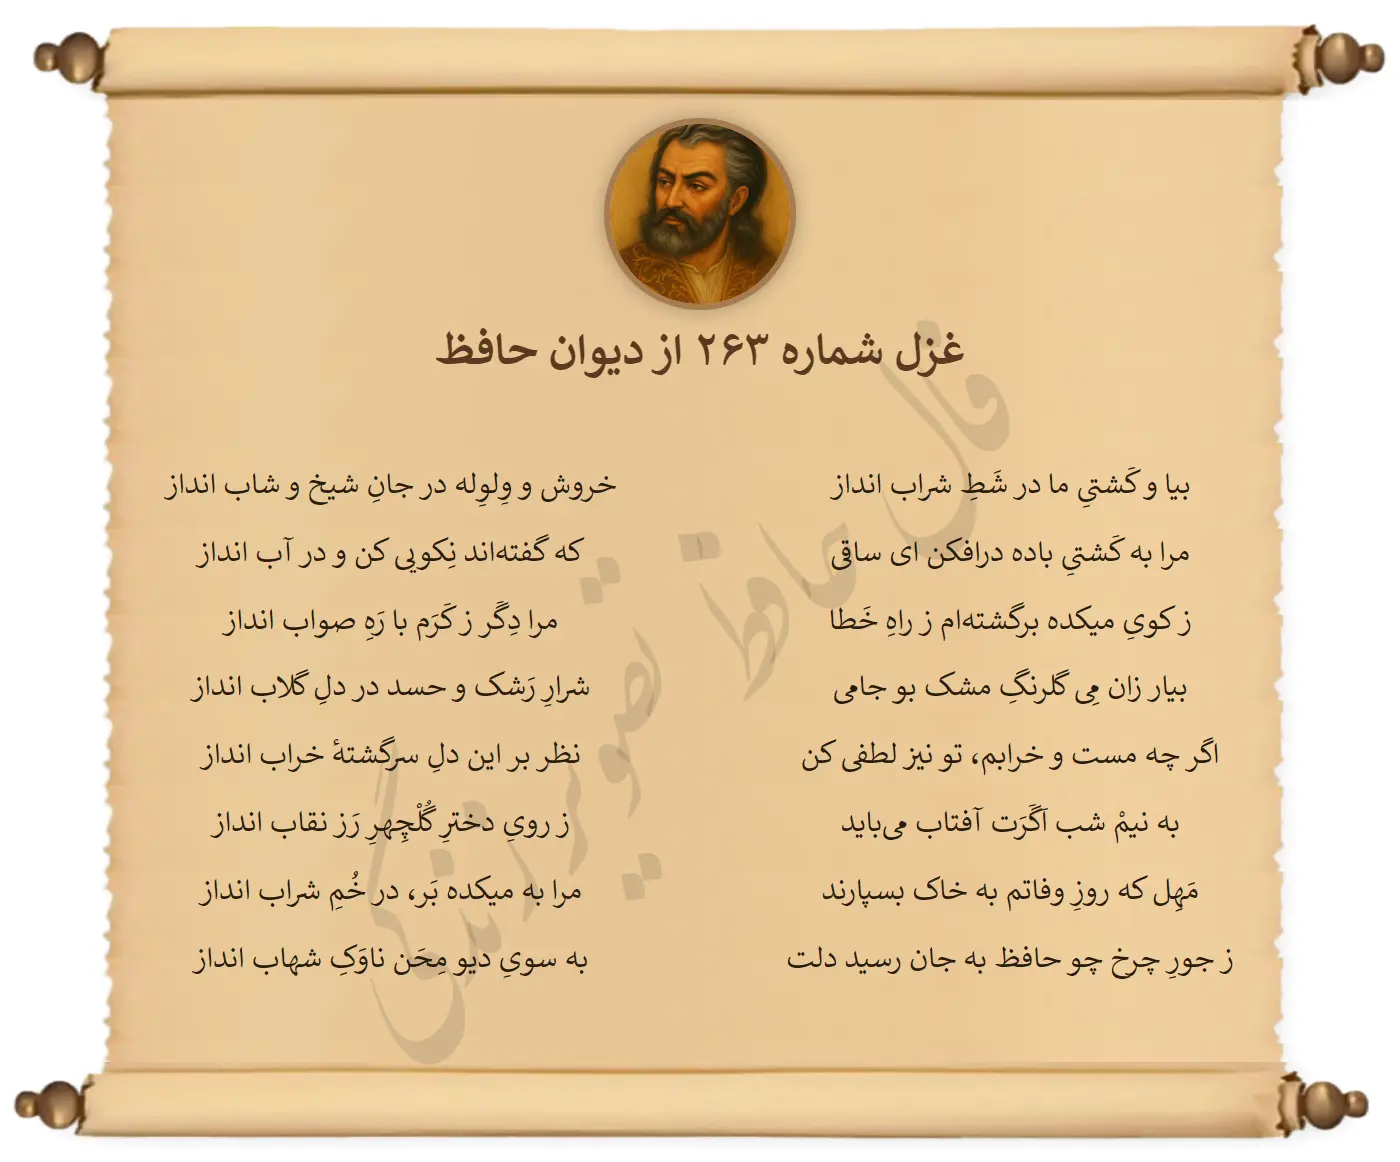 غزل شماره ۲۶۳ از دیوان حافظ
بیا و کَشتیِ ما در شَطِ شراب انداز خروش و وِلوِله در جانِ شیخ و شاب انداز
مرا به کَشتیِ باده درافکن ای ساقی که گفته‌اند نِکویی کن و در آب انداز
ز کویِ میکده برگشته‌ام ز راهِ خَطا مرا دِگَر ز کَرَم با رَهِ صواب انداز
بیار زان مِی گلرنگِ مشک بو جامی شرارِ رَشک و حسد در دلِ گلاب انداز
اگر چه مست و خرابم، تو نیز لطفی کن نظر بر این دلِ سرگشتهٔ خراب انداز
به نیمْ شب اَگَرَت آفتاب می‌باید ز رویِ دخترِ گُلْچِهرِ رَز نقاب انداز
مَهِل که روزِ وفاتم به خاک بسپارند مرا به میکده بَر، در خُمِ شراب انداز
ز جورِ چرخ چو حافظ به جان رسید دلت به سویِ دیو مِحَن ناوَکِ شهاب انداز
فال حافظ تصویر زندگی